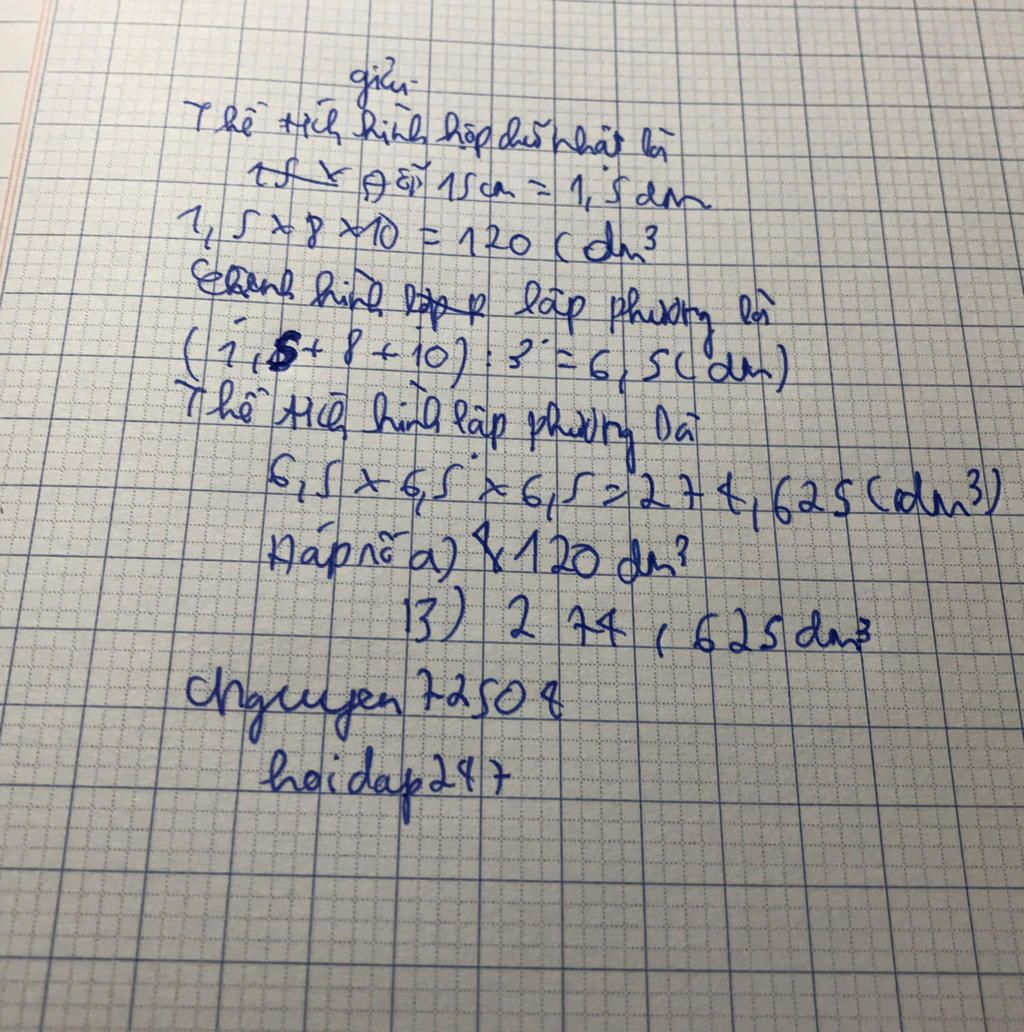 giải
Thể tích hình hộp chữ nhật là
Đổi 15cm = 1,5dm
1,5 x 8 x 10 = 120 (dm³
Cạnh hình lập phương là
(1,5 + 8 + 10) : 3 = 6,5(dm)
Thể tích hình lập phương là
6,5 x 6,5 x 6,5 = 274,625 (dm³)
Đáp số a) 120 dm³
B) 274,625dm³
chguyen72508
hoidap247